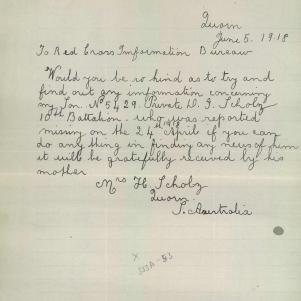 Quorn
June 5. 1918
To Red Cross Information Bureau
Would you be so kind as to try and
find out any information concerning
my Son. No 5429. Private D. J. Scholz
10th Battalion. who was reported
missing on the 24th April if you can
do any thing in finding any news of him
it will be gratefully received by his
mother
Mrs H. Scholz
Quorn.
S. Australia